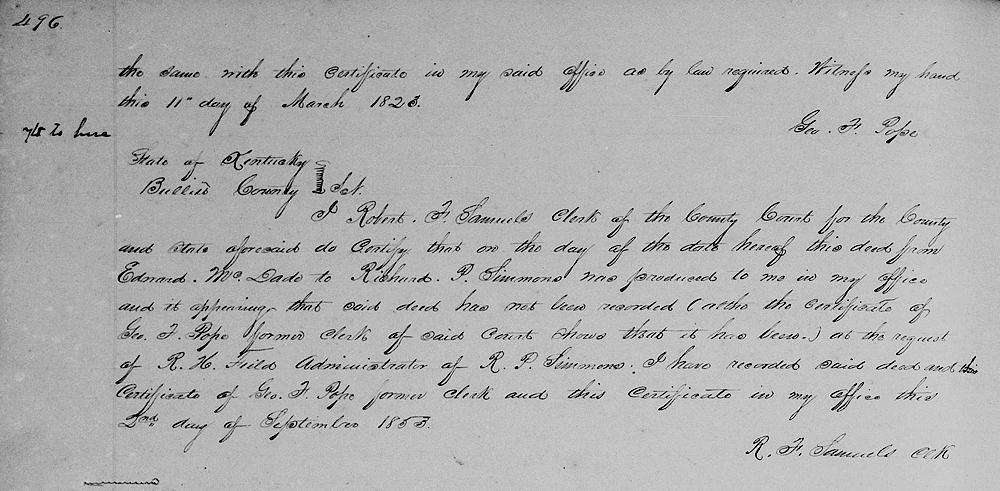 496.
the same with this Certificate in my said office as by law required. Witness my hand
this 11" day of March 1823.
Geo. F. Pope
to here
State of Kentucky
Bullitt County Sct.
I Robert. F. Samuels Clerk of the County Court for the County
and state aforesaid do Certify that on the day of the date hereof this deed from
Edward. McDade to Richard. P. Simmons was produced to me in my office
and it appearing that said deed has not been recorded (altho the Certificate of
Geo. F. Pope former Clerk of said Court shows that it has been.) at the request
of R. H. Field Administrator of R. P. Simmons. I have recorded said deed and this
Certificate of Geo. F. Pope former Clerk and this Certificate in my office this
2nd day of September 1853.
R. F. Samuels Clk